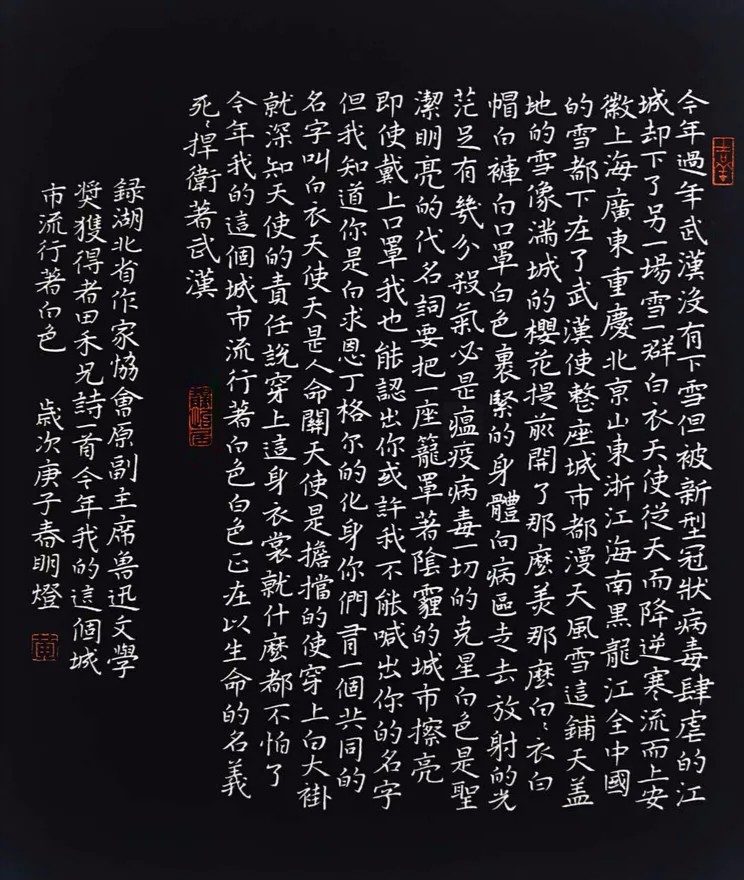 今年過年武漢沒有下雪但被新型冠狀病毒肆虐的江
城却下了另一場雪一群白衣天使從天而降逆寒流而上安
徽上海廣東重慶北京山東浙江海南黑龍江全中國
的雪都下在了武漢使整座城市都漫天風雪這鋪天蓋
地的雪像滿城的櫻花提前開了那麼美那麼白白衣白
帽白褲白口罩白色裹緊的身體向病區走去放射的光
茫足有幾分殺氣必是瘟疫病毒一切的克星白色是聖
潔明亮的代名詞要把一座籠罩著陰霾的城市擦亮
即使戴上口罩我也能認出你或許我不能喊出你的名字
但我知道你是白求恩丁格尔的化身你們有一個共同的
名字叫白衣天使天是人命關天使是擔擋的使穿上白大褂
就深知天使的責任說穿上這身衣裳就什麼都不怕了
今年我的這個城市流行著白色白色正在以生命的名義
死死捍衛著武漢
録湖北省作家協會原副主席魯迅文學
獎獲得者田禾兄詩一首今年我的這個城
市流行著白色 歲次庚子春明燈